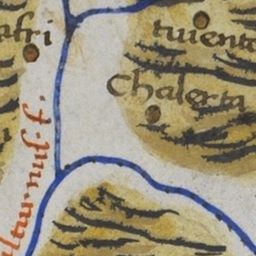 afri
tuienta
Chalerta
ultur·nus·f·